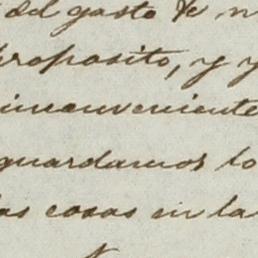 del gasto de n
proposito, y y
inconveniente
guardamos lo
las cosas en la